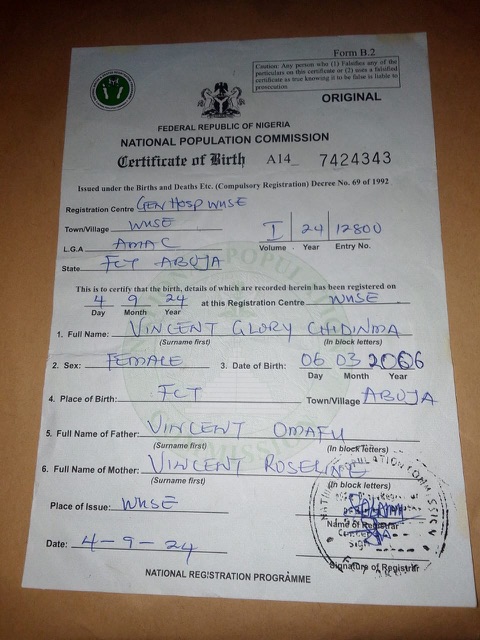 Form B.2
Caution: Any person who (1) Falsifies any of the
particulars on this certificate or (2) uses a falsified
certificate as true knowing it to be false is liable to
prosecution.
ORIGINAL
FEDERAL REPUBLIC OF NIGERIA
NATIONAL POPULATION COMMISSION
Certificate of Birth A14 7424343
Issued under the Births and Deaths Etc. (Compulsory Registration) Decree No. 69 of 1992
Registration Centre GEN HOSP WUSE
Town/Village WUSE
I 24 12800
L.G.A AMAC
Volume Year Entry No.
State FCT ABUJA
This is to certify that the birth, details of which are recorded herein has been registered on
4 9 24 at this Registration Centre WUSE
Day Month Year
1. Full Name: VINCENT GLORY CHIDINMA
(Surname first) (In block letters)
2. Sex: FEMALE 3. Date of Birth: 06 03 2006
Day Month Year
4. Place of Birth: FCT Town/Village ABUJA
5. Full Name of Father: VINCENT OMAFU
(Surname first) (In block letters)
6. Full Name of Mother: VINCENT ROSELINE
(Surname first) (In block letters)
Place of Issue: WUSE
Name of Registrar
Date: 4-9-24
Signature of Registrar
NATIONAL REGISTRATION PROGRAMME